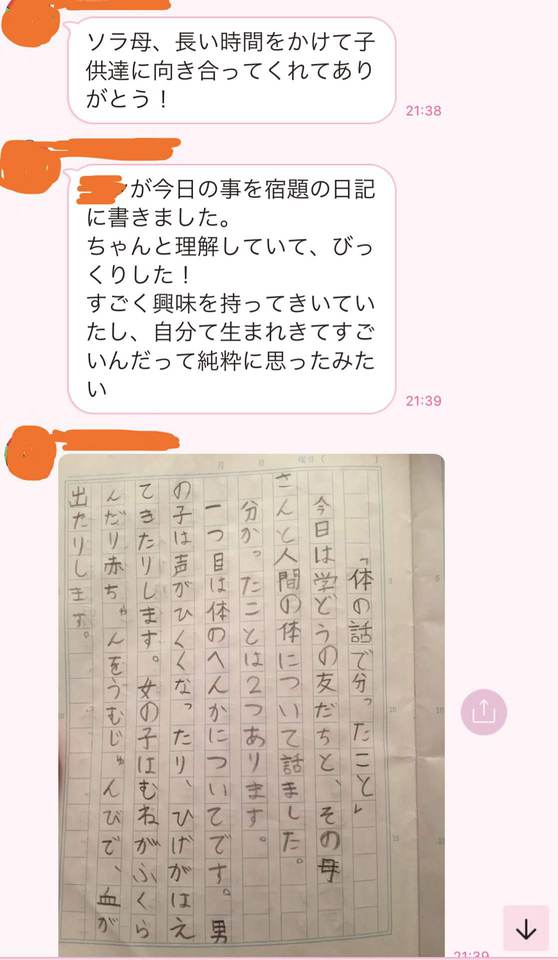 ソラ母、長い時間をかけて子
供達に向き合ってくれてあり
がとう！
21:38
が今日の事を宿題の日記
に書きました。
ちゃんと理解していて、びっ
くりした！
すごく興味を持ってきいてい
たし、自分て生まれきてすご
いんだって純粋に思ったみた
い
21:39
月 日 曜日( )
「体の話で分ったこと」
今日は学どうの友だちと、その母
さんと人間の体について話ました。
分かったことは2つあります。
一つ目は体のへんかについてです。男
の子は声がひくくなったり、ひげがはえ
てきたりします。女の子はむねがふくら
んだり赤ちゃんをうむじゅんびで、血が
出たりします。
21:39